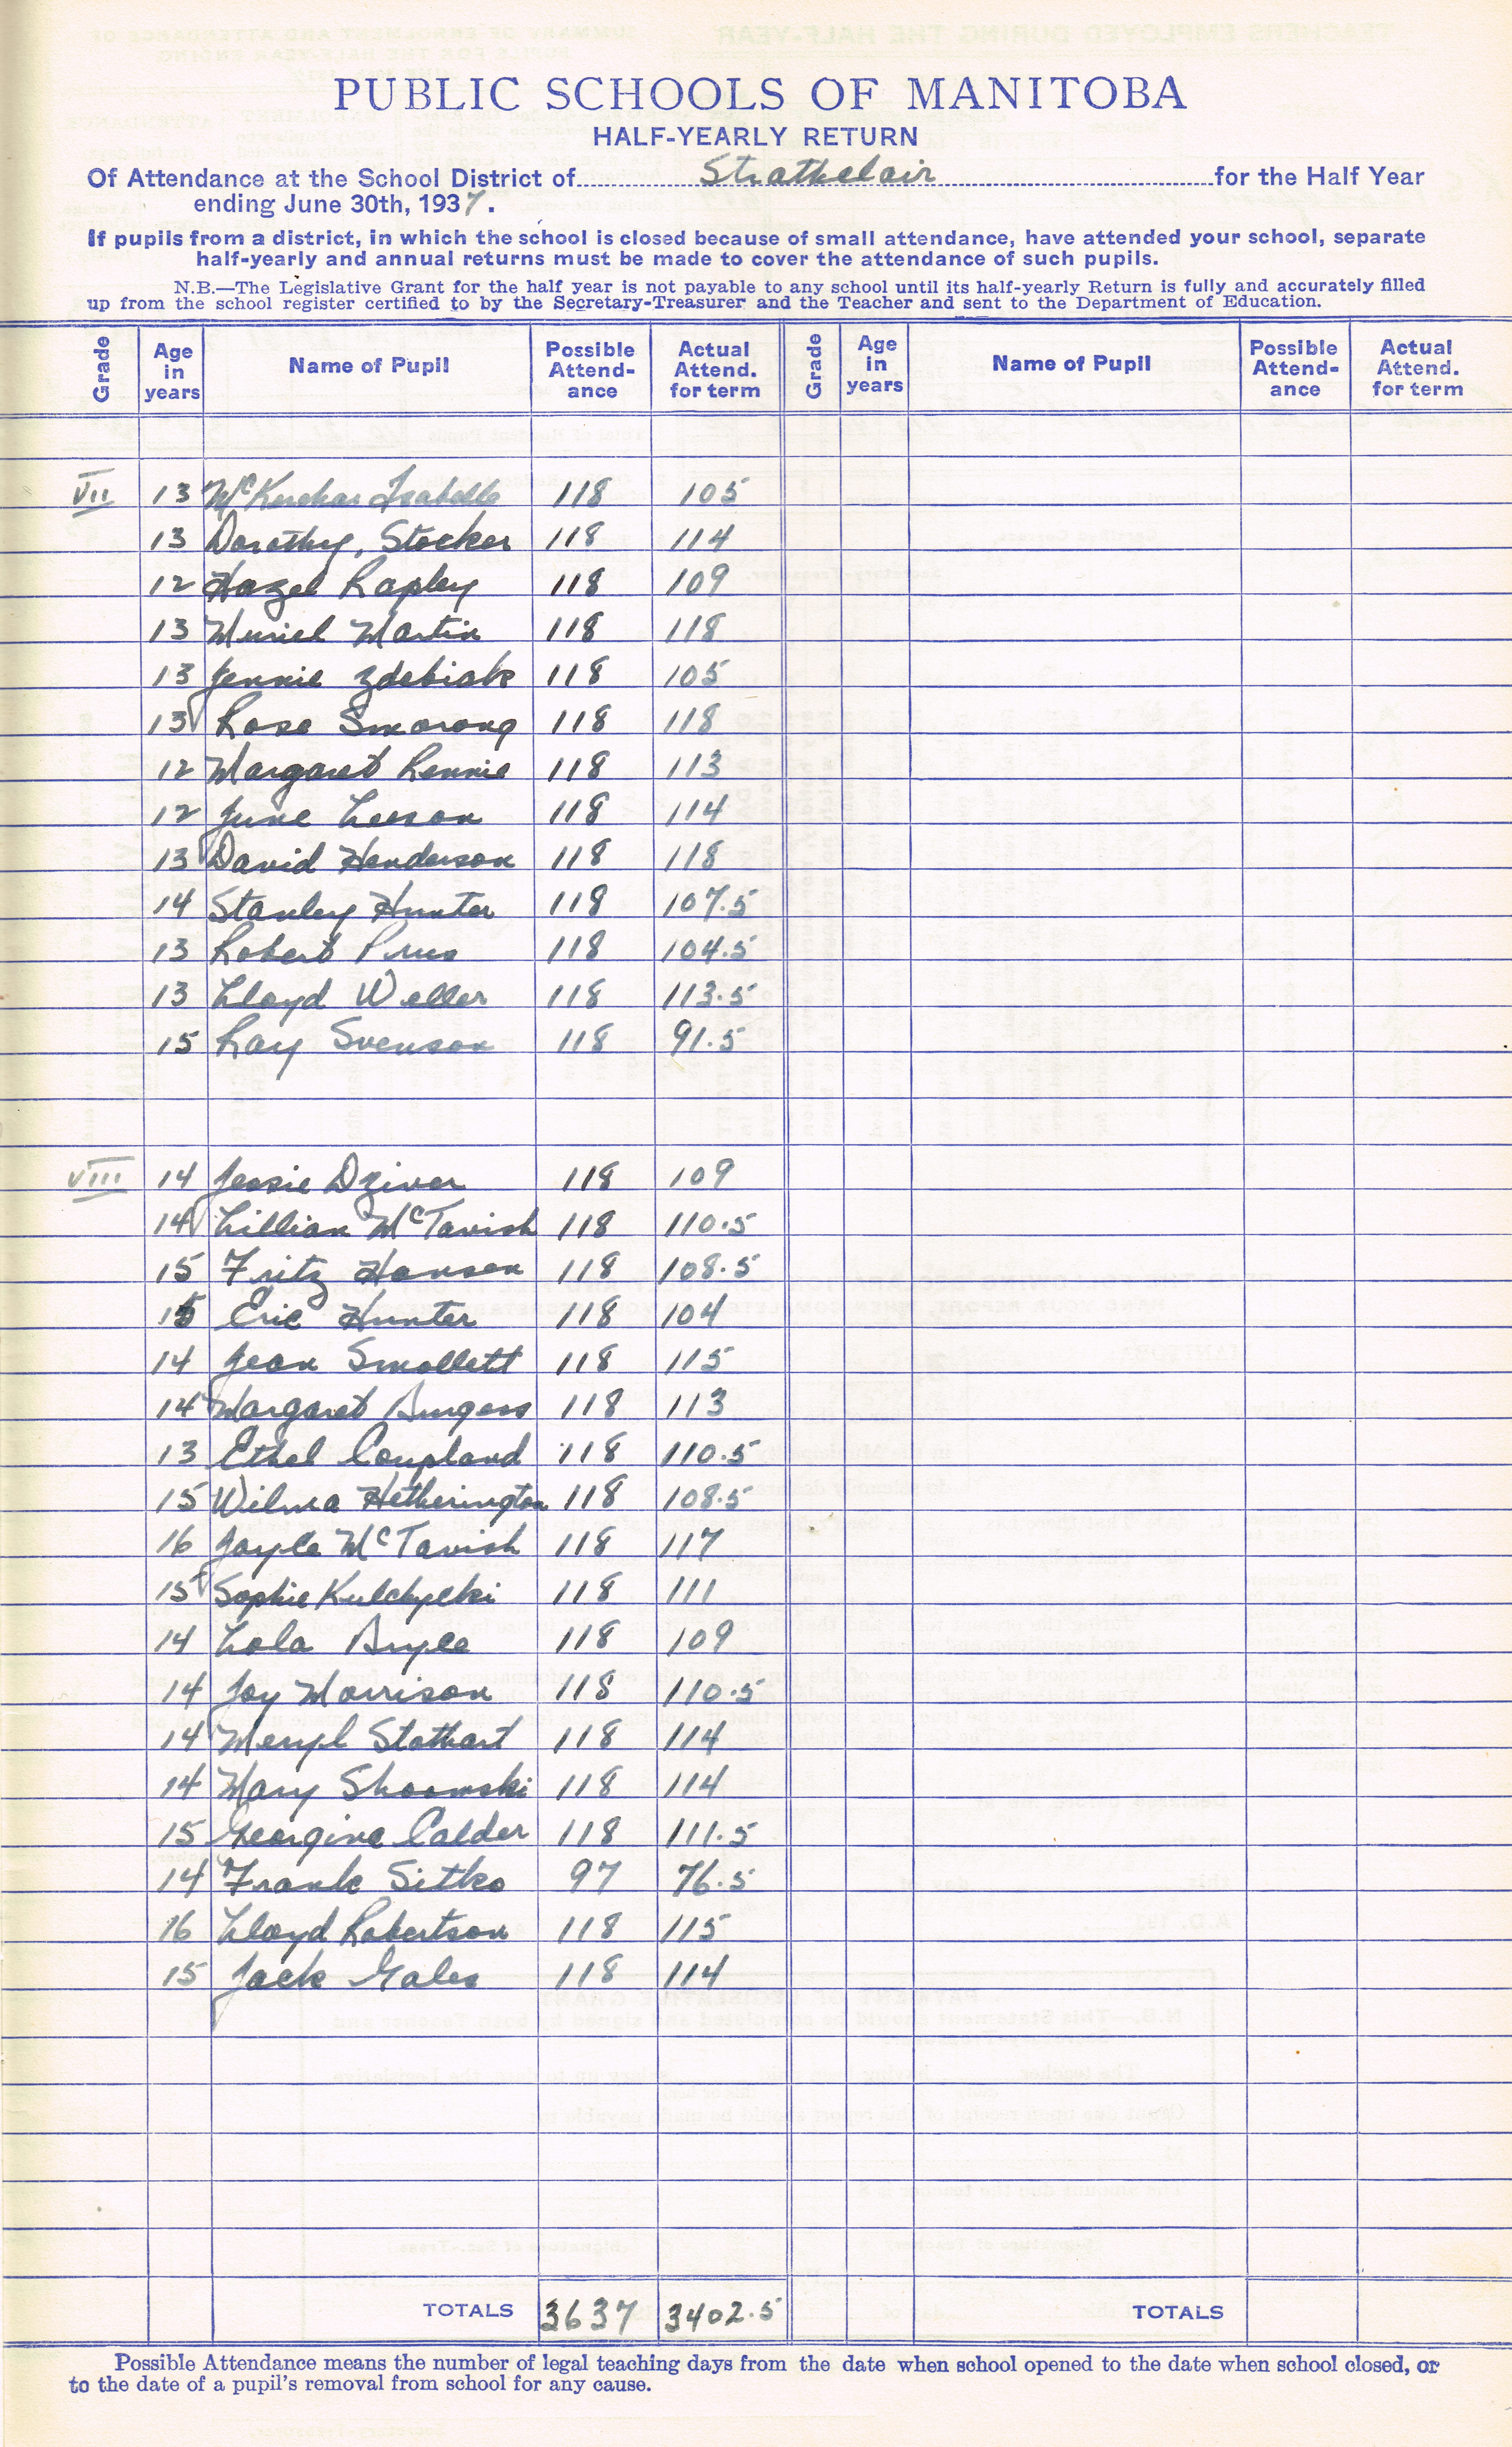 PUBLIC SCHOOLS OF MANITOBA
HALF-YEARLY RETURN
Of Attendance at the School District of Strathclair for the Half Year
ending June 30th, 1937.
If pupils from a district, in which the school is closed because of small attendance, have attended your school, separate
half-yearly and annual returns must be made to cover the attendance of such pupils.
N.B.—The Legislative Grant for the half year is not payable to any school until its half-yearly Return is fully and accurately filled
up from the school register certified to by the Secretary-Treasurer and the Teacher and sent to the Department of Education.
Grade Age in years Name of Pupil Possible Attend-ance Actual Attend. for term Grade Age in years Name of Pupil Possible Attend-ance Actual Attend. for term
VII 13 McKerchar Isabelle 118 105
13 Dorothy, Stocker 118 114
12 Hazel Rapley 118 109
13 Muriel Martin 118 118
13 Jennie Zdebiak 118 105
13 Rose Smorong 118 118
12 Margaret Rennie 118 113
12 June Leeson 118 114
13 David Henderson 118 118
14 Stanley Hunter 118 107.5
13 Robert Prus 118 104.5
13 Lloyd Weller 118 113.5
15 Ray Svenson 118 91.5
VIII 14 Jessie Dziver 118 109
14 Lillian McTavish 118 110.5
15 Fritz Hansen 118 108.5
15 Eric Hunter 118 104
14 Jean Smollett 118 115
14 Margaret Burgess 118 113
13 Ethel Coupland 118 110.5
15 Wilma Hetherington 118 108.5
16 Joyce McTavish 118 117
15 Sophie 118 111
14 Lola Bryce 118 109
14 Joy Morrison 118 110.5
14 Meryl Stothart 118 114
14 Mary 118 114
15 Georgina Calder 118 111.5
14 Frank Sitko 97 76.5
16 Lloyd Robertson 118 115
15 Jack Gales 118 114
TOTALS 3637 3402.5 TOTALS
Possible Attendance means the number of legal teaching days from the date when school opened to the date when school closed, or
to the date of a pupil's removal from school for any cause.